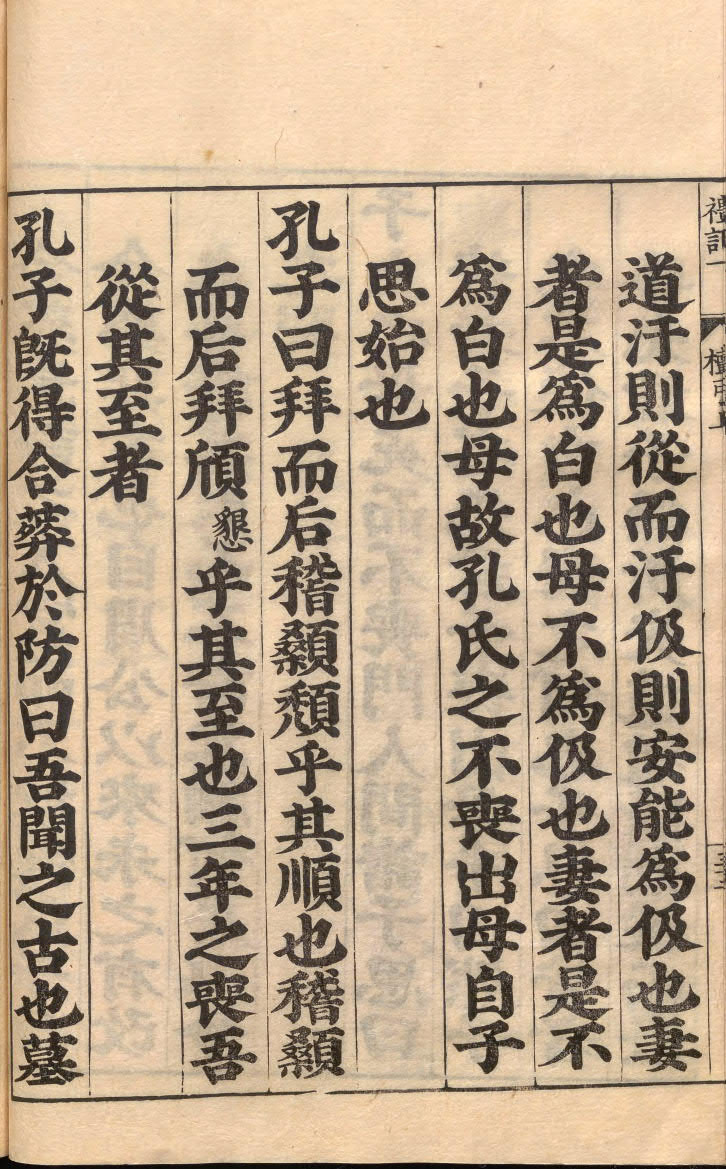 禮記一 檀弓上
道汙則從而汙伋則安能爲伋也妻
者是爲白也母不爲伋也妻者是不
爲白也母故孔氏之不喪出母自子
思始也
孔子曰拜而后稽顙頹乎其順也稽顙
而后拜頎懇乎其至也三年之喪吾
從其至者
孔子旣得合葬於防曰吾聞之古也墓